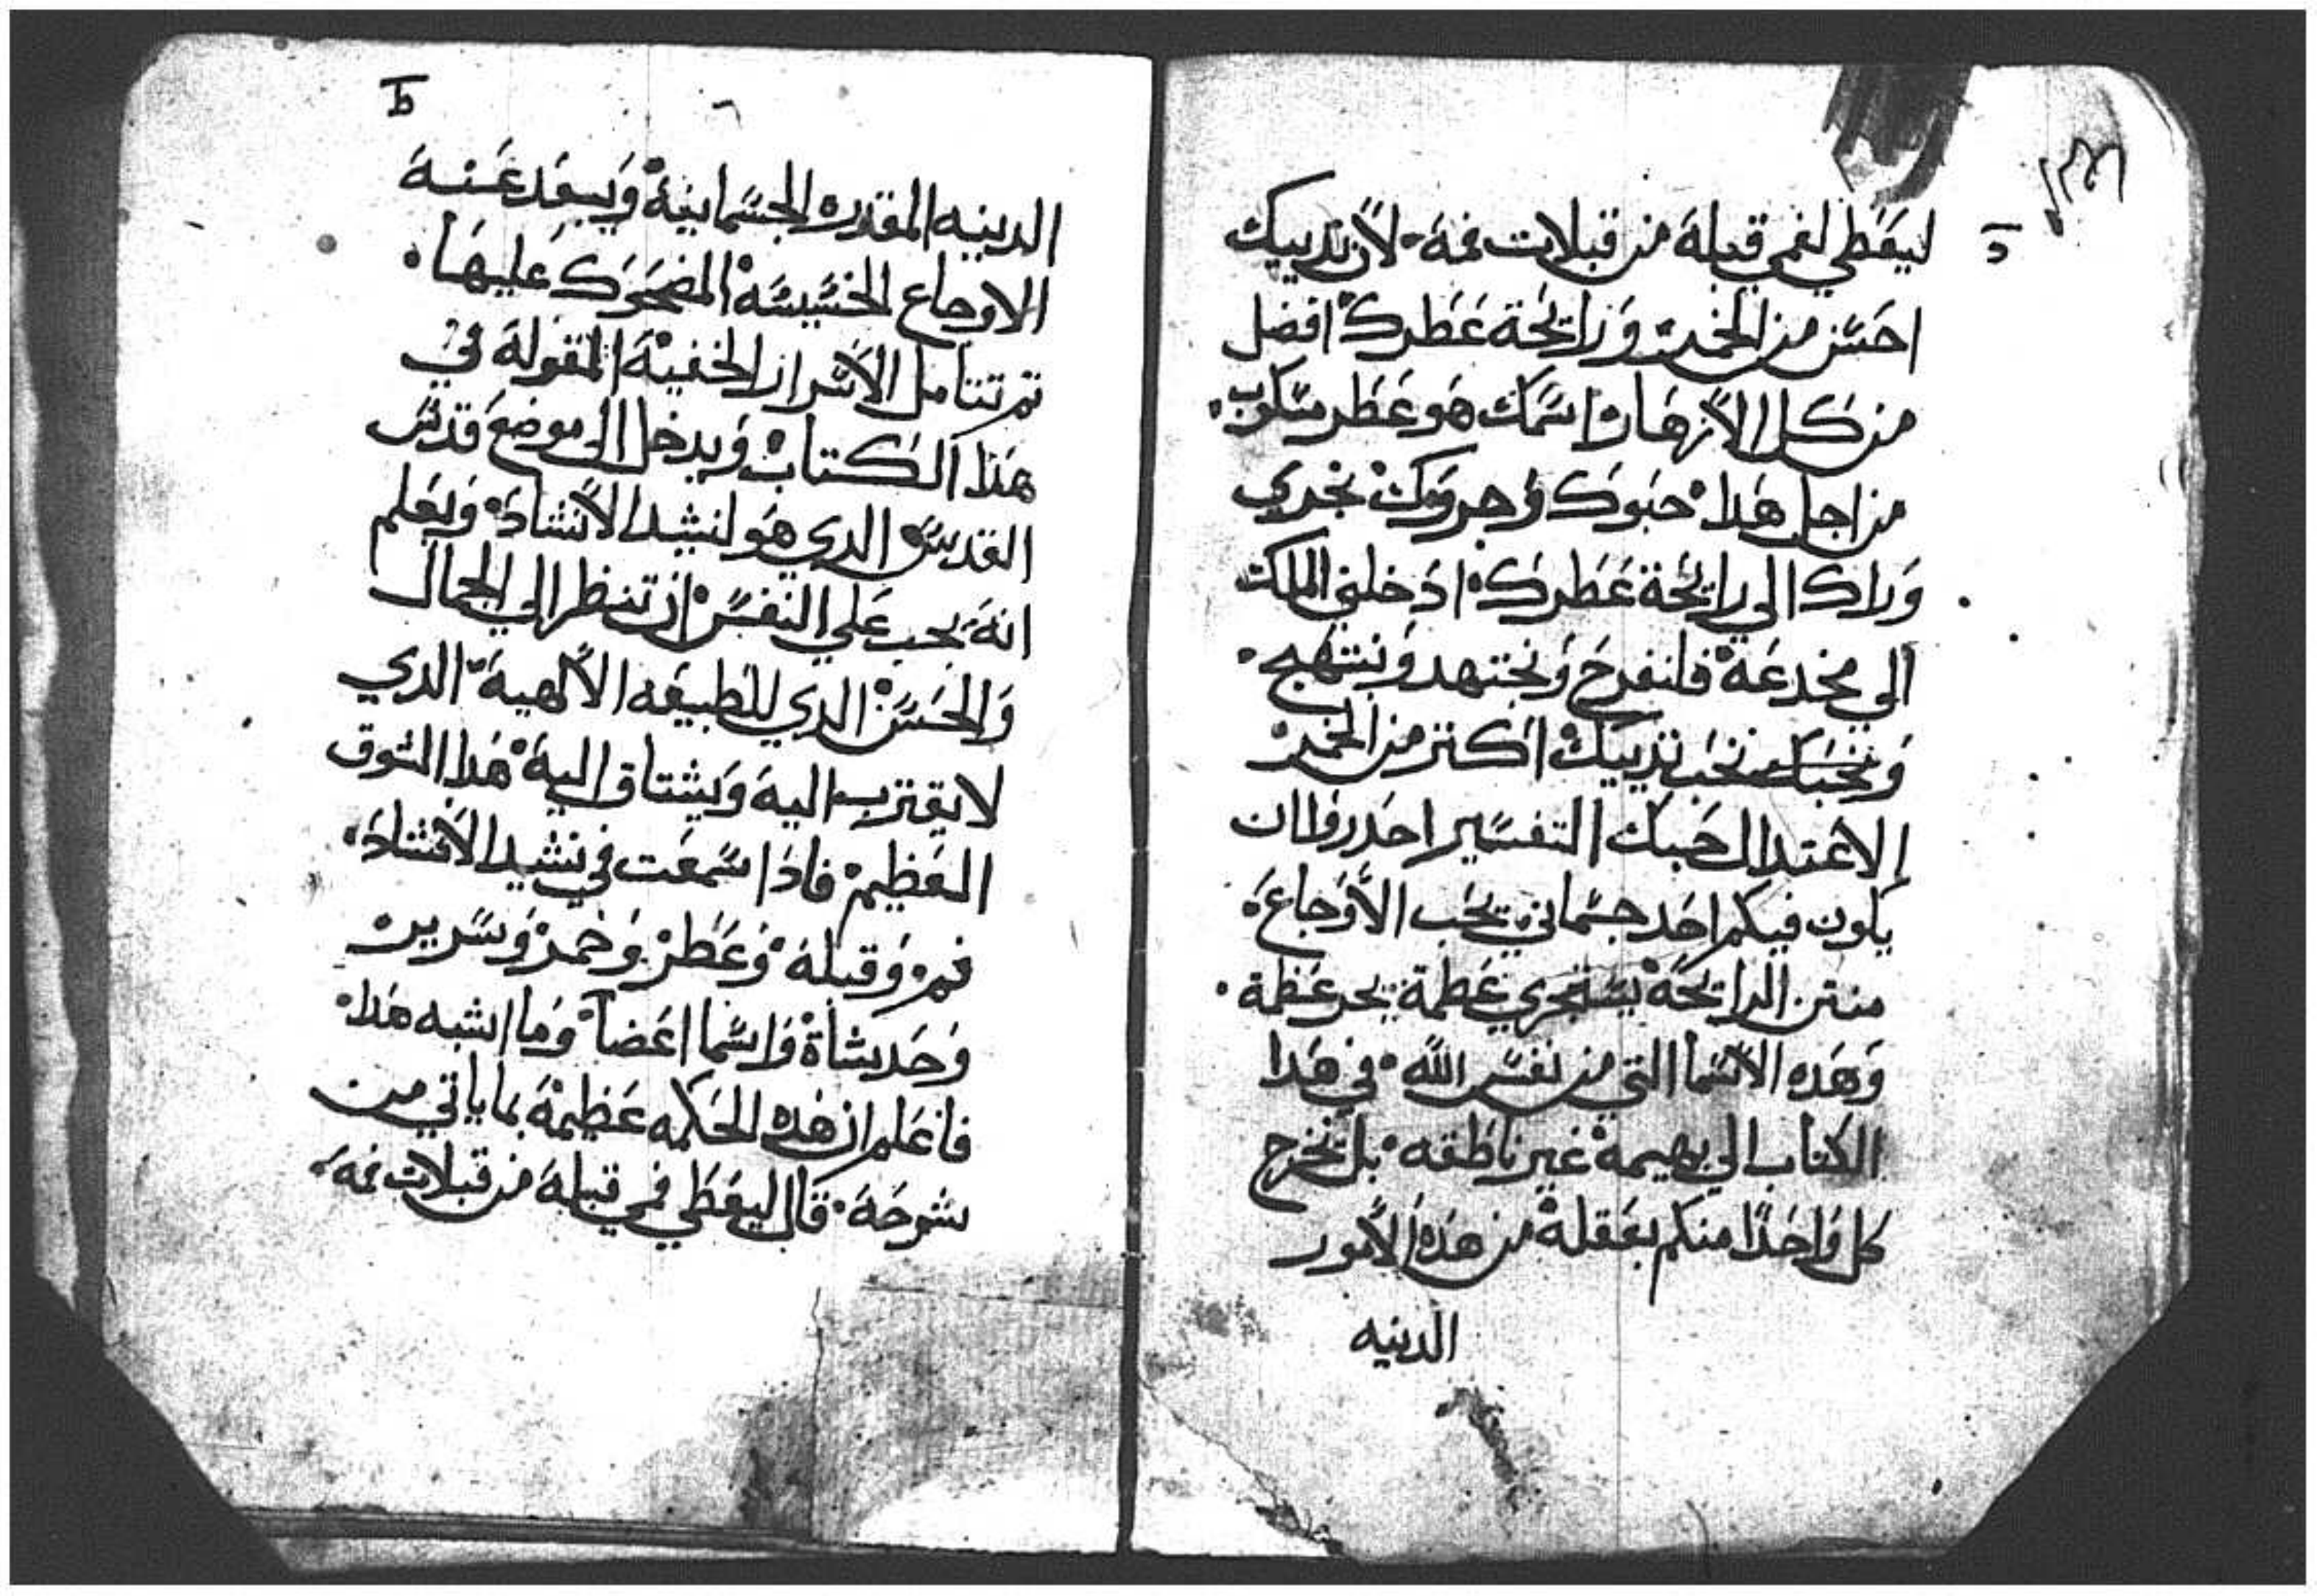 ليعطي لفمي قبلة من قبلات فمه لان تدييك
احسن من الخمر ورايحة عطرك افضل
من كل الانهار اسمك هو عطر مسكوب
من اجل هدا حبوك وجروك نجري
وراك الي رايحة عطرك ادخلني الملك
الي مخدعة فلنفرح ونجتهد ونبتهج
ونحبك نحب تدييك اكتر من الخمر
الاعتدال حبك التفسير احدروا ان
يكون فيكم احد جسماني يحب الاوجاع
منتن الرايحة يستجري عظمة يجر عظمة
وهده الاسما التي من نفس الله في هدا
الكتاب الي بهيمة غير ناطقه بل نخرج
كل واحدا منكم بعقلة من هده الامور
الدنيه
الدنيه المقدره الجسمانية ويبعد عنه
الاوجاع الخسيسة المضحوك عليها
تم تتامل الاسرار الخفية المقولة في
هدا الكتاب ويدخل الي موضع قدس
القديس الدي هو لنشيد الانشاد ويعلم
انة يجب علي النفس ان تنظر الي الجمال
والحسن الدي للطبيعه الالهية الدي
لا يقترب الية ويشتاق الية هدا الشوق
العظيم فادا سمعت في نشيد الانشاد
فم وقبلة وعطر وخمر وسرير
وحديثاة واسما اعضا وما اشبه هدا
فاعلم ان هده الحكمه عظيمة بما ياتي من
شرحة قال ليعطي فمي قبلة من قبلات فمة